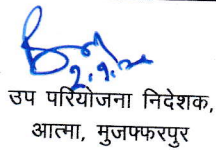 2.9.20
उप परियोजना निदेशक,
आत्मा, मुजफ्फरपुर